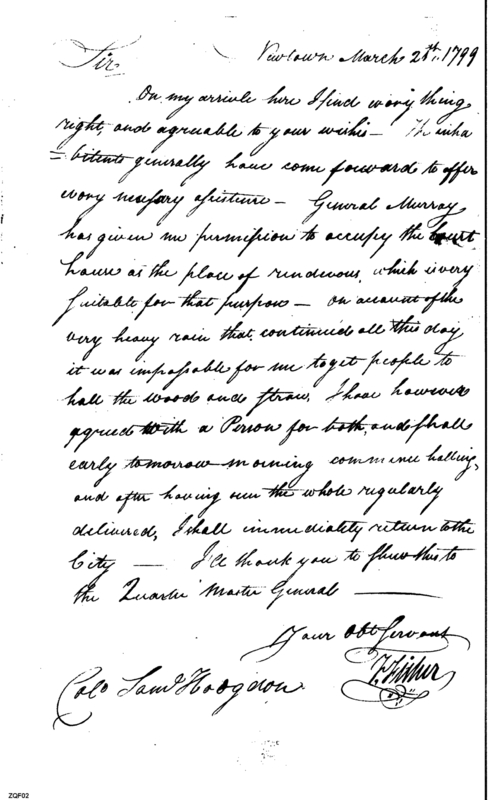 Newtown March 28th. 1799
Sir
On my arrivle here I find every thing
right, and agreable to your wishes — The inha
= bitents generally have come forward to offer
every nessesary asistence — General Murray
has given me permission to occupy the Court
house as the place of rendevous, which is very
Suitable for that purpose — on account of the
very heavy rain that continued all this day
it was impossable for me to get people to
hall the wood and straw, I have however
agreed with a Person for both, and shall
early tomorrow morning commence halling,
and after having seen the whole regularly
delivered, I shall immediately return to the
City — I'll thank you to shew this to
the Quarter Master General —
Your Obt Servant
Fisher
Colo Saml Hodgdon
ZQF02